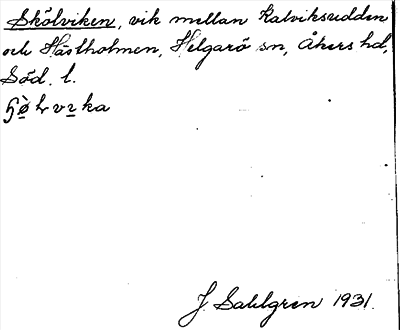 Skölviken, vik mellan Kalviksudden
och Hästholmen, Helgarö sn, Åkers hd,
Söd. l.
J. Sahlgren 1931.